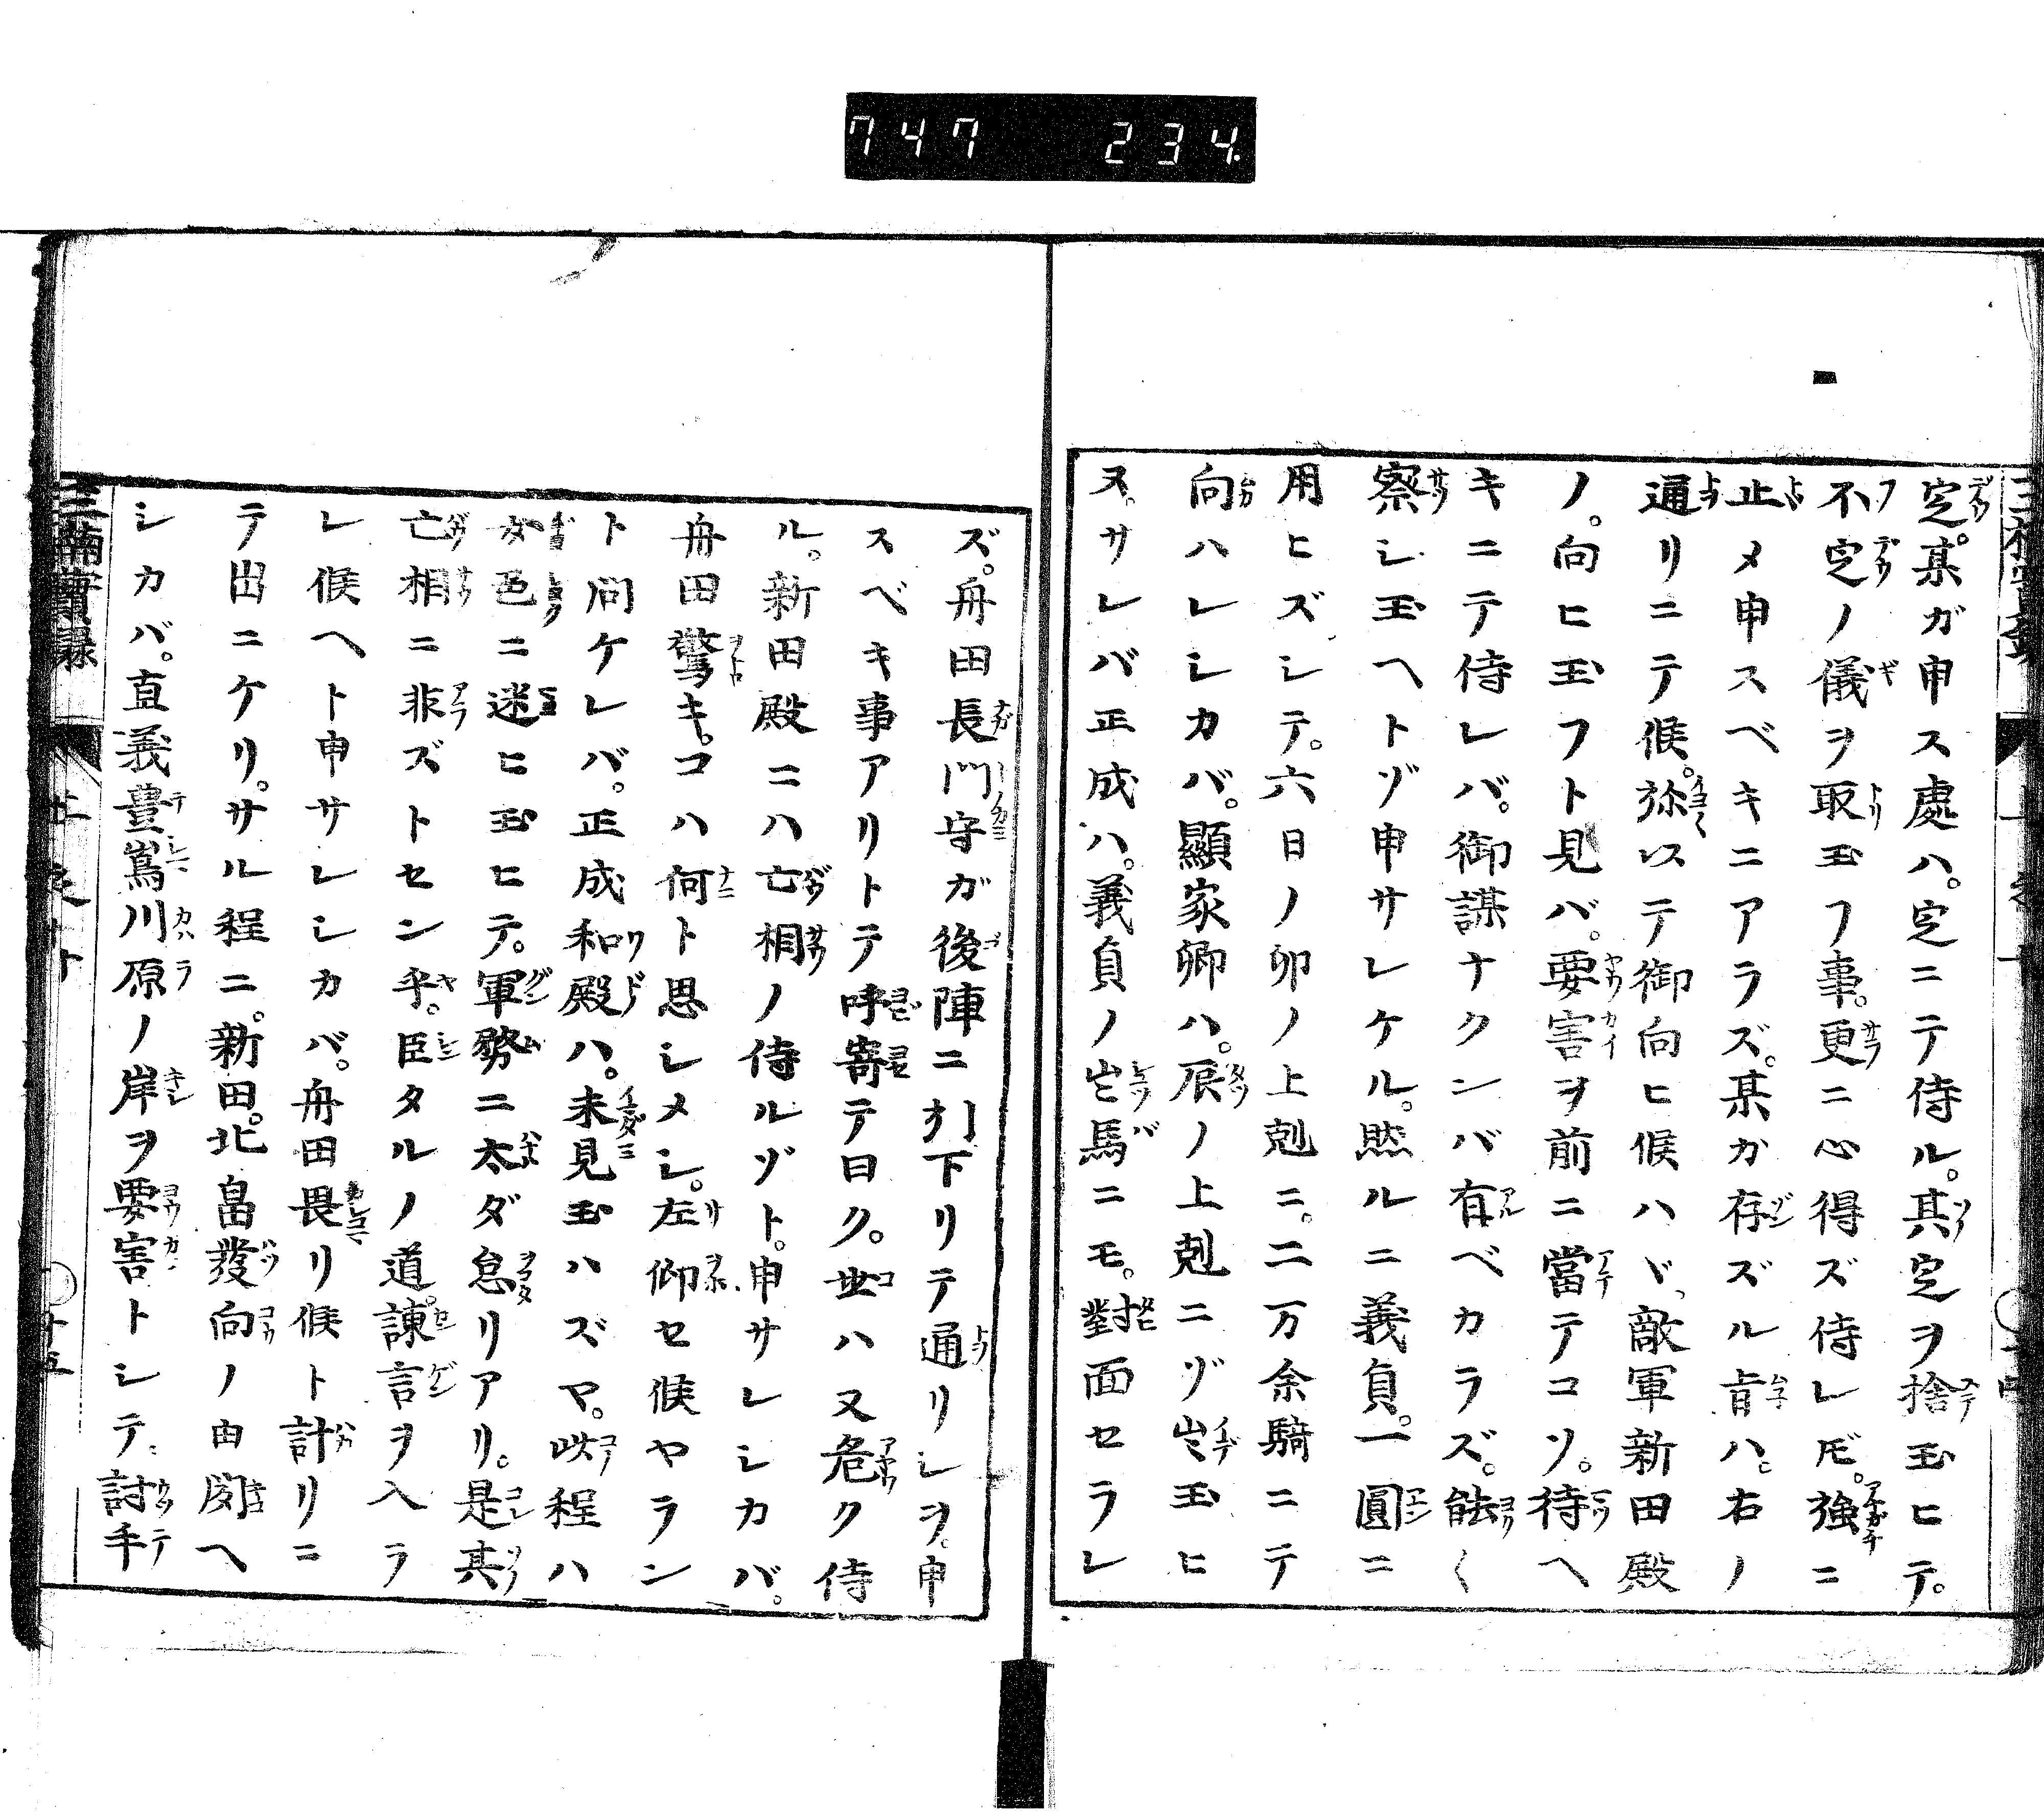 747 234.
定。某ガ申ス處ハ。定ニテ侍ル。其定ヲ捨玉ヒテ。
不定ノ儀ヲ取玉フ事。更ニ心得ズ侍レ𪜈。強ニ
止メ申スベキニアラズ。某カ存ズル肯ハ。右ノ
通リニテ候。弥以テ御向ヒ候ハヾ、敵軍新田殿
ノ。向ヒ玉フト見バ。要害ヲ前ニ當テコソ。待ヘ
キニテ侍レバ。御謀ナクンバ有ベカラズ。能〱
察シ玉ヘトゾ申サレケル。然ルニ義貞。一圓ニ
用ヒズシテ。六日ノ卯ノ上剋ニ。二万余騎ニテ
向ハレシカバ。顯家卿ハ。辰ノ上剋ニゾ出玉ヒ
ヌ。サレバ正成ハ。義貞ノ出馬ニモ。對面セラレ
ズ。舟田長門守ガ後陣ニ打下リテ通リシヲ。申
スベキ事アリトテ呼寄テ曰ク。世ハ又危ク侍
ル。新田殿ニハ亡相ノ侍ルゾト。申サレシカバ。
舟田驚キ。コハ何ト思シメシ。左仰セ候ヤラン
ト問ケレバ。正成和殿ハ。未見玉ハズヤ。此程ハ
女色ニ迷ヒ玉ヒテ。軍勢ニ太ダ怠リアリ。是其
亡相ニ非ズトセン乎。臣タルノ道。諫言ヲ入ラ
レ候ヘト申サレシカバ。舟田畏リ候ト計リニ
テ出ニケリ。サル程ニ。新田。北畠發向ノ由聞ヘ
シカバ。直義豊嶌川原ノ岸ヲ要害トシテ。討手
十五